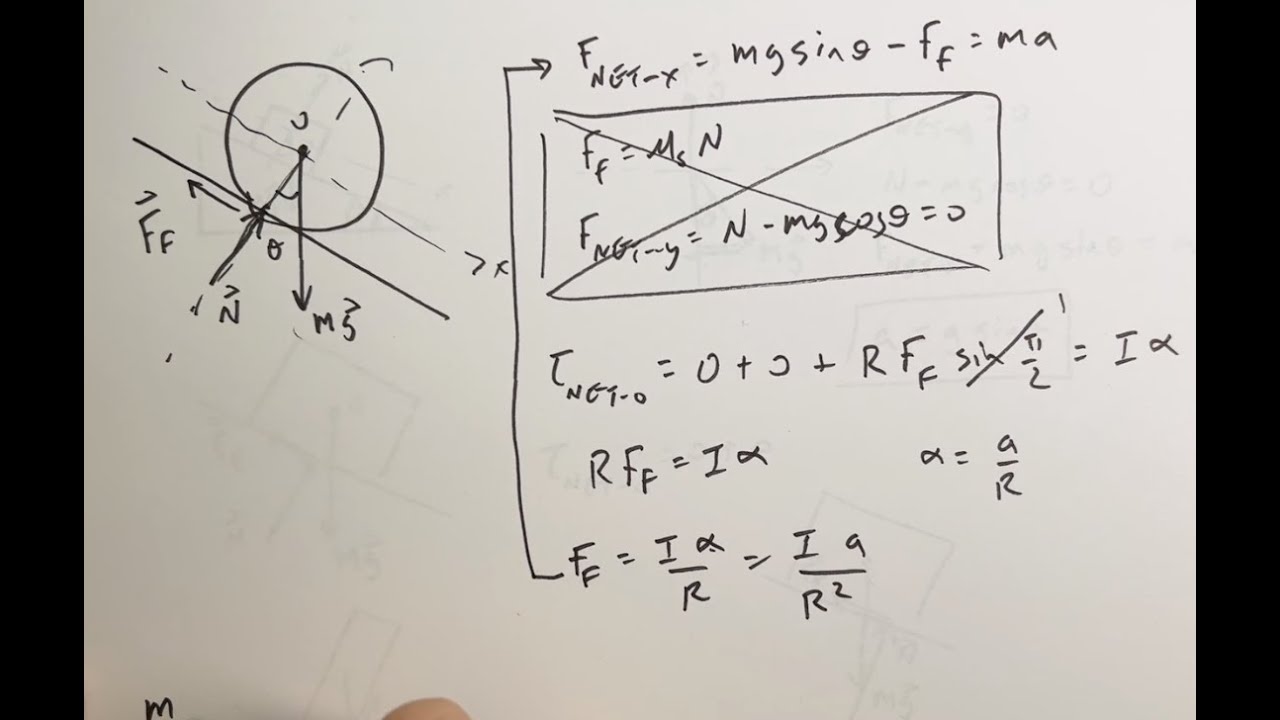 F_NET-x = mg sin θ - f_f = ma
f_f = μ_s N
F_NET-y = N - mg cos θ = 0
O
F⃗_F
θ
x
N⃗
mg⃗
τ_NET-O = 0 + 0 + R F_F sin π/2 = I α
1
R F_F = I α
α = a/R
F_F = I α / R = I a / R²
m